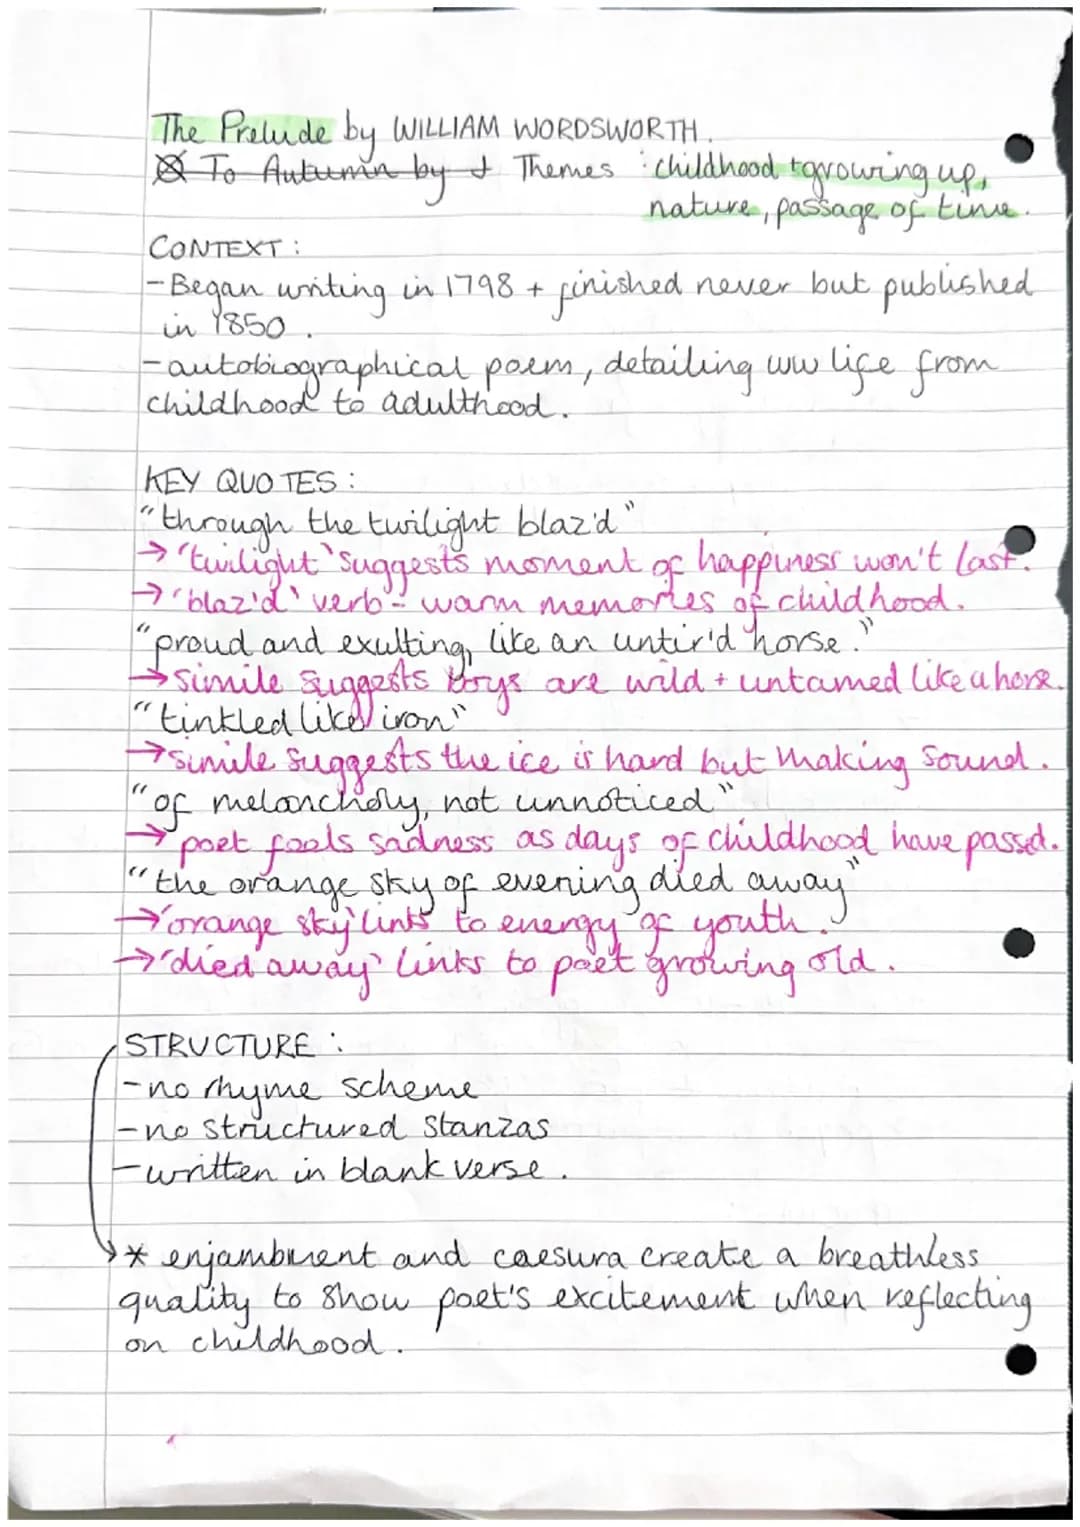 The Prelude by WILLIAM WORDSWORTH.
To Autumn by J Themes : childhood + growing up,
nature, passage of time.
CONTEXT:
- Began writing in 1798 + finished never but published
in 1850.
- autobiographical poem, detailing ww life from
childhood to adulthood.
KEY QUOTES:
"through the twilight blaz'd"
→ 'twilight' suggests moment of happiness won't last.
→ 'blaz'd' verb - warm memories of childhood.
"proud and exulting, like an untir'd horse."
→ simile suggests boys are wild + untamed like a horse.
"tinkled like iron"
→ simile suggests the ice is hard but making sound.
"of melancholy, not unnoticed"
→ poet feels sadness as days of childhood have passed.
"the orange sky of evening died away"
→ 'orange sky' links to energy of youth.
→ 'died away' links to poet growing old.
STRUCTURE:
- no rhyme scheme
- no structured stanzas
- written in blank verse.
* enjambment and caesura create a breathless
quality to show poet's excitement when reflecting
on childhood.